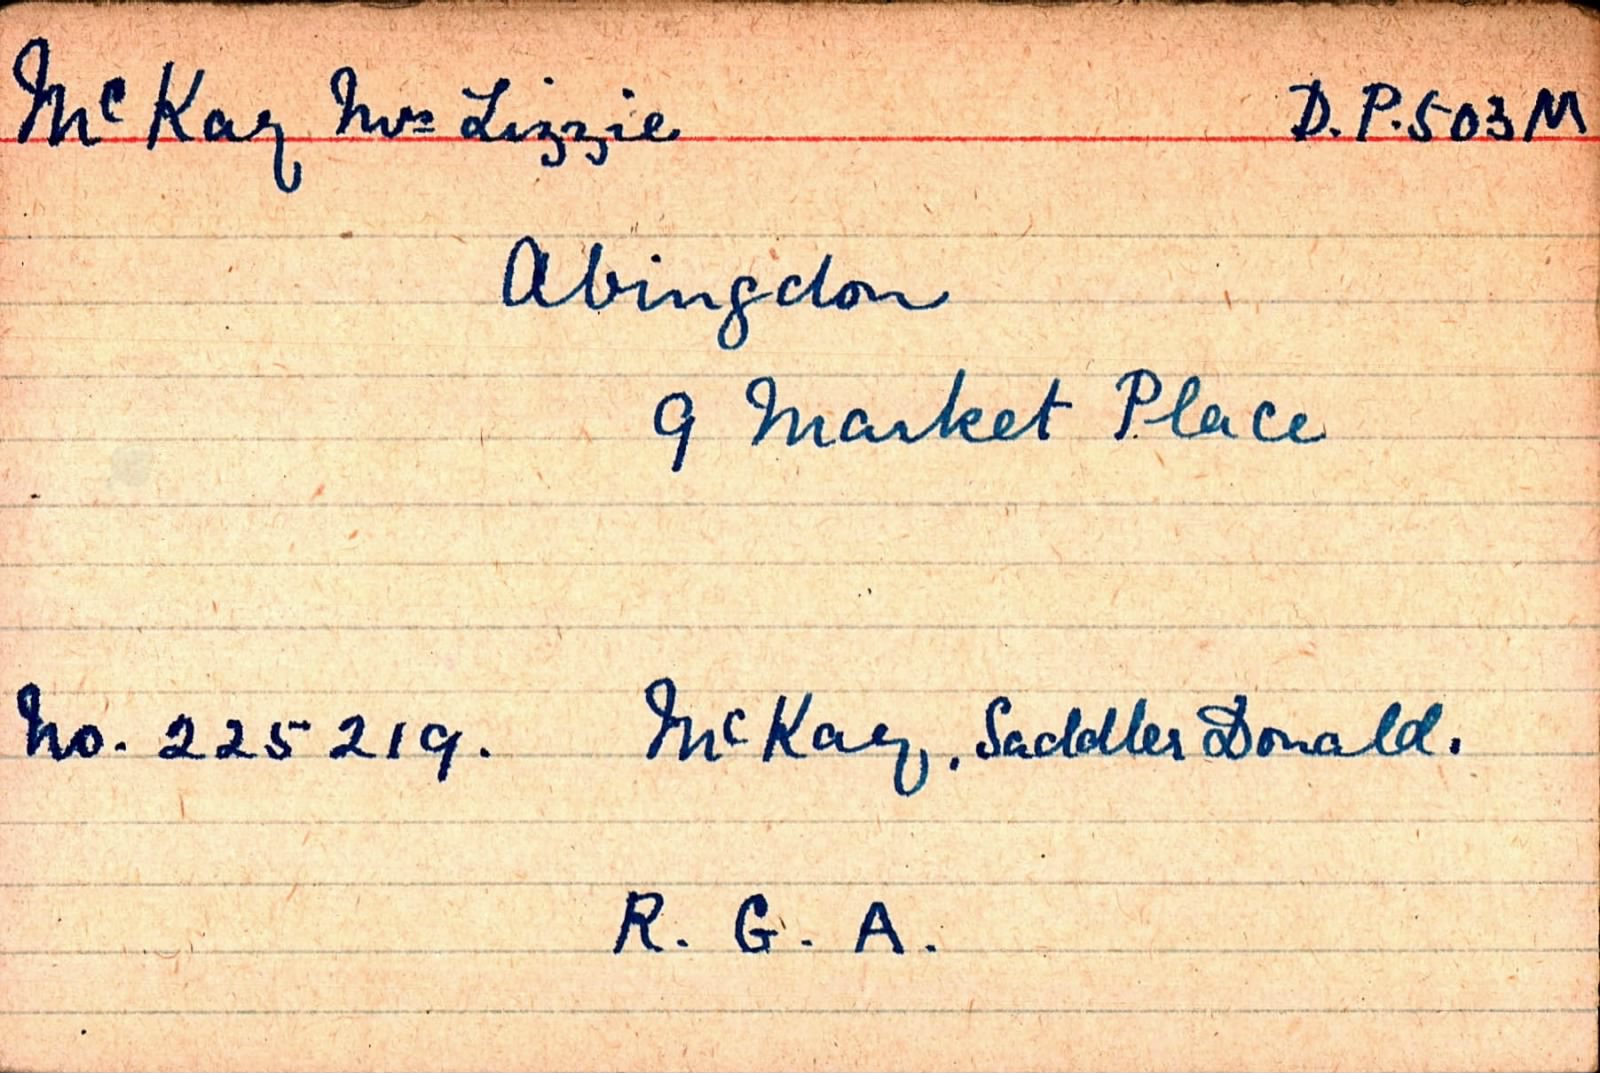 McKay Mrs Lizzie D.P.503M
Abingdon
9 Market Place
No. 225219. McKay, Saddler Donald.
R. G. A.